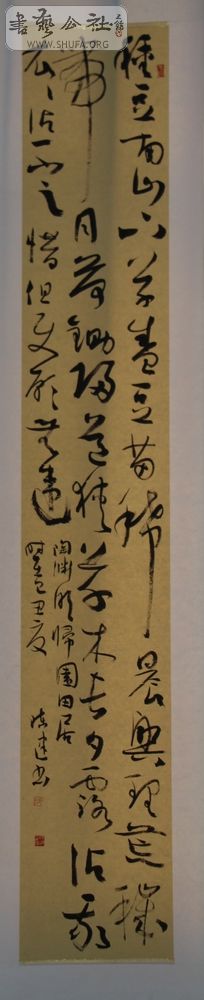 書藝公社
WWW.SHUFA.ORG
種豆南山下草盛豆苗稀晨興理荒穢
帶月荷鋤歸道狹草木長夕露沾我
衣〻沾不足惜但使願無違
陶淵明歸園田居
丑夏
書